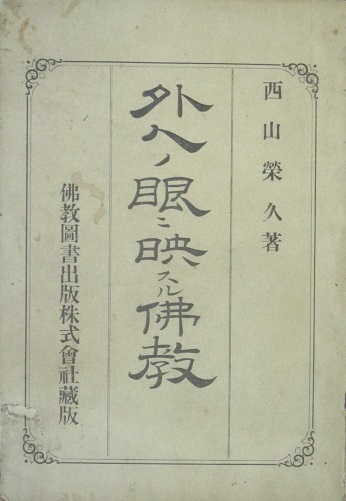 西山榮久著
外人ノ眼ニ映スル佛教
佛教圖書出版株式會社藏版